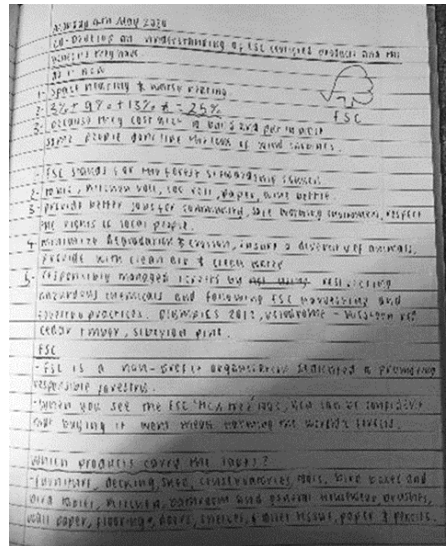 Monday 4th May 2020
LO-Develop an understanding of FSC certified products and the
benefits they have
Do it now
1- Space heating & water heating
2- 3% + 9% + 13% = 25%
3- because they cost alot to build and put in
some people dont like the look of wind turbines.
FSC
- FSC stands for the Forest Stewardship Council
2- kitchen roll, loo roll, paper, wine bottle
3- provide better jobs for community, safe working environment, respect
the rights of local people.
4- minimize degradation & erosion, ensure a diverse of animals,
provide with clean air & clean water
5- responsibly managed forests by not using restricting
hazardous chemicals and following FSC harvesting and
practices. Olympics 2012, velodrome - western red
cedar timber, siberian pine.
FSC
- FSC is a non-profit organisation dedicated to promoting
responsible forestry.
- when you see the FSC 'tick tree' logo, you can be confident
that buying it wont mean harming the world's forests.
Which products carry the logo?
- furniture, decking, sheds, conservatories, tools, bird boxes and
bird tables, kitchen, bathroom and general household brushes,
wall paper, flooring, doors, shelves, toilet tissue, paper & pencils.